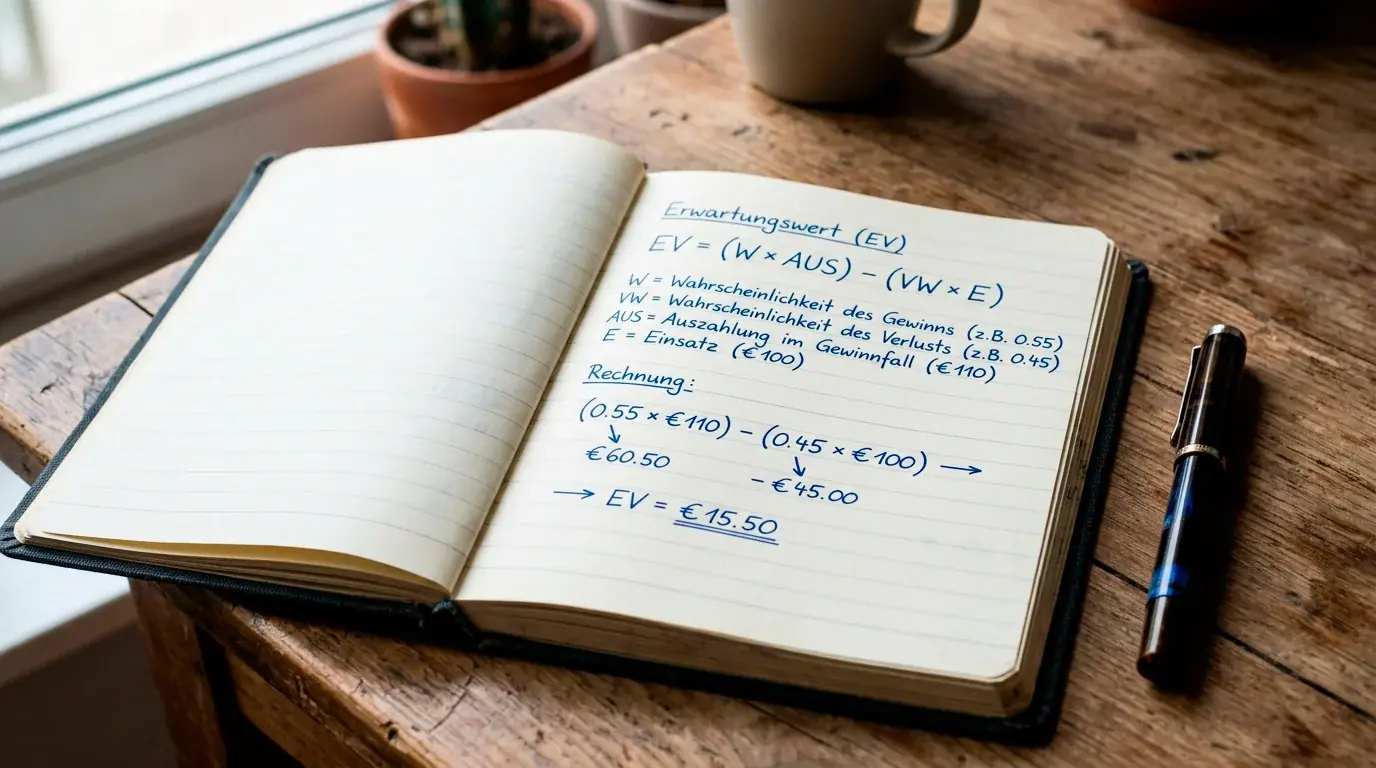 Erwartungswert (EV)
EV = (W × AUS) – (VW × E)
W = Wahrscheinlichkeit des Gewinns (z.B. 0.55)
VW = Wahrscheinlichkeit des Verlusts (z.B. 0.45)
AUS = Auszahlung im Gewinnfall (€110)
E = Einsatz (€100)
Rechnung:
(0.55 × €110) – (0.45 × €100) →
↘ ↘
€60.50 – €45.00
→ EV = €15.50